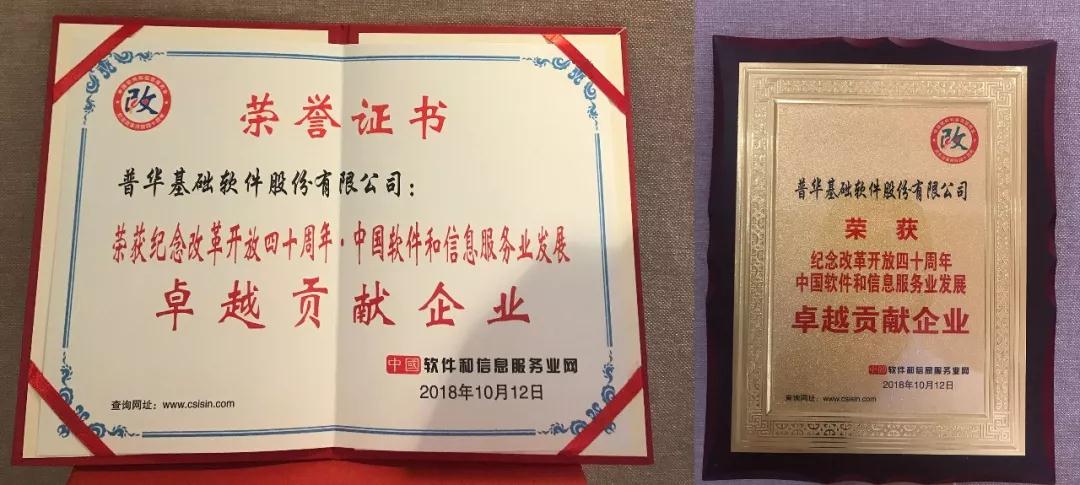 改
荣誉证书
普华基础软件股份有限公司：
荣获纪念改革开放四十周年·中国软件和信息服务业发展
卓越贡献企业
中國软件和信息服务业网
2018年10月12日
查询网址：www.csisin.com
改
普华基础软件股份有限公司
荣获
纪念改革开放四十周年
中国软件和信息服务业发展
卓越贡献企业
中國软件和信息服务业网
2018年10月12日
查询网址：www.csisin.com